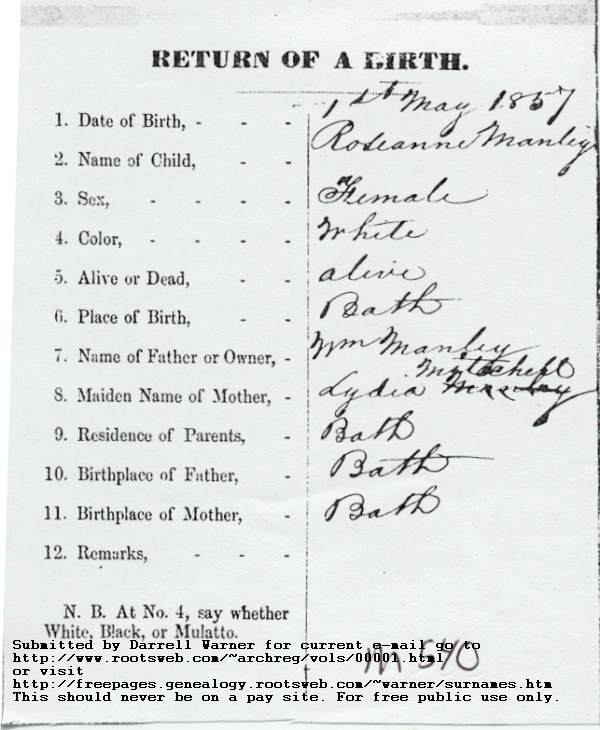 RETURN OF A BIRTH.
1. Date of Birth, - - - 1st May 1857
2. Name of Child, - - Roseanne Manley
3. Sex, - - - - Female
4. Color, - - - - White
5. Alive or Dead, - - alive
6. Place of Birth, - - Bath
7. Name of Father or Owner, - Wm Manley
Mitchell
8. Maiden Name of Mother, - Lydia Manley
9. Residence of Parents, - Bath
10. Birthplace of Father, - Bath
11. Birthplace of Mother, - Bath
12. Remarks, - - -
N. B. At No. 4, say whether
White, Black, or Mulatto.
M 540
Submitted by Darrell Warner for current e-mail go to
http://www.rootsweb.com/~archreg/vols/00001.html
or visit
http://freepages.genealogy.rootsweb.com/~warner/surnames.htm
This should never be on a pay site. For free public use only.